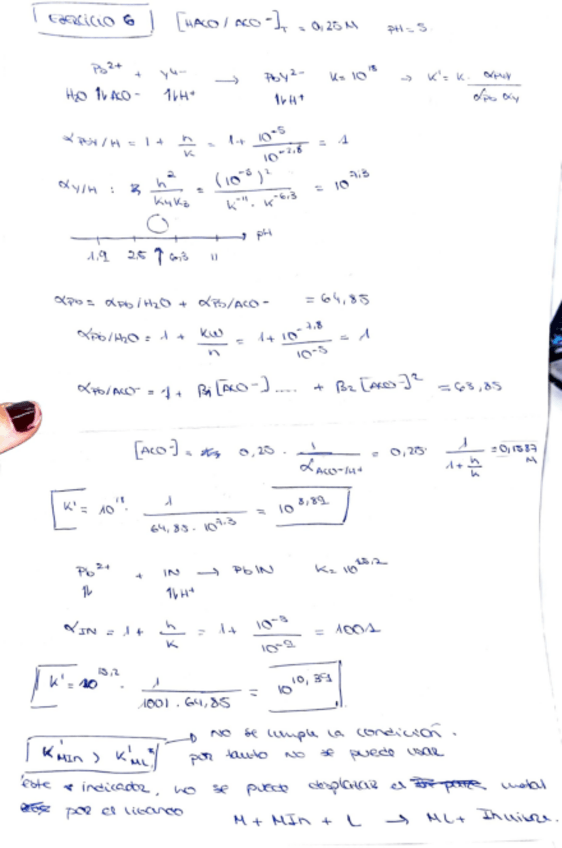 EJERCICIO 6 [HACO/ACO-]T = 0,25 M pH = 5
Pb2+ + Y4- → PbY2- K = 10^18 → K' = K · αPbY / αPb αY
H2O ⇅ ACO- ⇅ H+ ⇅ H+
αPbY/H = 1 + h/K = 1 + 10^-5 / 10^-2,8 = 1
αY/H : h² / K4K3 = (10^-5)² / K^-11 · K^-6,3 = 10^7,3
→ pH
1.9 2.5 ↑ 6,3 11
αPb = αPb/H2O + αPb/ACO- = 64,85
αPb/H2O = 1 + KW/h = 1 + 10^-7,8 / 10^-5 = 1
αPb/ACO- = 1 + β1[ACO-]..... + β2[ACO-]² = 63,85
[ACO-] = 0,25 · 1 / αACO-/H+ = 0,25 · 1 / 1 + h/K = 0,1587 M
K' = 10^18 · 1 / 64,85 · 10^7,3 = 10^8,89
Pb2+ + IN → PbIN K = 10^15,2
⇅ ⇅ H+
αIN = 1 + h/K = 1 + 10^-5 / 10^-9 = 1001
K' = 10^15,2 · 1 / 1001 · 64,85 = 10^10,39
K'MIn > K'ML → No se cumple la condición.
por tanto no se puede usar
éste indicador, no se puede desplazar el metal
por el ligando
M + MIn + L → ML +